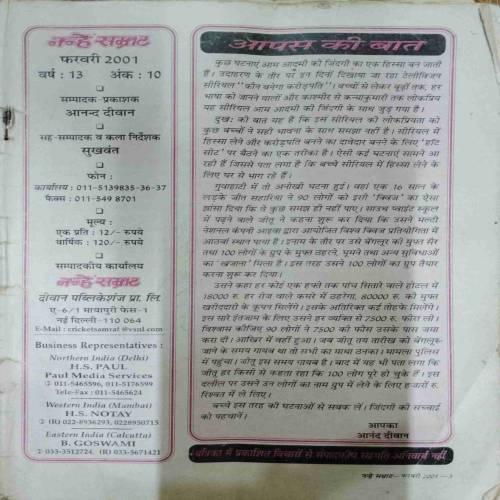 नन्हे सम्राट
फरवरी 2001
वर्ष : 13 अंक : 10
सम्पादक-प्रकाशक
आनन्द दीवान
सह-सम्पादक व कला निर्देशक
सुखवंत
फोन :
कार्यालय : 011-5139835-36-37
फैक्स : 011-549 8701
मूल्य :
एक प्रति : 12/- रुपये
वार्षिक : 120/- रुपये
सम्पादकीय कार्यालय
नन्हे सम्राट
दीवान पब्लिकेशंज प्रा. लि.
ए-6/1 मायापुरी फेस-1
नई दिल्ली-110 064
E-Mail : cricketsamrat@vsnl.com
Business Representatives :
Northern India (Delhi)
H.S. PAUL
Paul Media Services
✆ 011-5465596, 011-5176599
Tele-Fax : 011-5465624
Western India (Mumbai)
H.S. NOTAY
✆ (R) 022-8936293, 0228950715
Eastern India (Calcutta)
B. GOSWAMI
✆ 033-3512724, (R) 033-5671421
आपस की बात
कुछ घटनाएं आम आदमी की जिंदगी का एक हिस्सा बन जाती
हैं। उदाहरण के तौर पर इन दिनों दिखाया जा रहा टेलीविजन
सीरियल ''कौन बनेगा करोड़पति''। बच्चों से लेकर बूढ़ों तक, हर
भाषा को जानने वालों और काश्मीर से कन्याकुमारी तक लोकप्रिय
यह सीरियल आम आदमी की जिंदगी के साथ जुड़ गया है।
दुख: की बात यह है कि इस सीरियल की लोकप्रियता को
कुछ बच्चों ने सही भावना के साथ समझा नहीं है। सीरियल में
हिस्सा लेने और करोड़पति बनने का दावेदार बनने के लिए 'हॉट
सीट' पर बैठने का एक तरीका है। ऐसी कई घटनाएं सामने आ
रही हैं जिससे पता लगा है कि बच्चे सीरियल में हिस्सा लेने के
लिए घर से भाग रहे हैं।
गुवाहाटी में तो अनोखी घटना हुई। यहां एक 16 साल के
लड़के जीत सहारिया ने 90 लोगों को इसी 'क्विज' का ऐसा
झांसा दिया कि वे कुछ समझ ही नहीं पाए। साउथ प्वाइंट स्कूल
में पढ़ने वाले जीतू ने कहना शुरू कर दिया कि उसने मल्टी
नेशनल कंपनी आइवा द्वारा आयोजित विश्व क्विज प्रतियोगिता में
आठवां स्थान पाया है। इनाम के तौर पर उसे बैंगलूर की मुफ्त सैर
तथा 100 लोगों के ग्रुप के मुफ्त ठहरने, घूमने तथा अन्य सुविधाओं
का 'खजाना' मिला है। इस तरह उसने 100 लोगों का ग्रुप तैयार
करना शुरू कर दिया।
उसने कहा हर कोई एक हफ्ते तक पांच सितारे वाले होटल में
18000 रु. हर रोज वाले कमरे में ठहरेगा, 80000 रु. की मुफ्त
खरीददारी के कूपन मिलेंगे। इसके अतिरिक्त कई तोहफे मिलेंगे।
इस सारे इंतजाम के लिए उसने हर व्यक्ति से 7500 रु. फीस ली।
विश्वास कीजिए 90 लोगों ने 7500 की फीस उसके पास जमा
करा दी। आखिर में वहीं हुआ। जब जीतू तय तारीख को बैंगलूर
जाने के समय गायब था तो सभी का माथा ठनका। मामला पुलिस
में पहुंचा। जीतू इस समय गायब है। बाद में यह भी पता लगा कि
जीतू हर किसी से कहता रहा कि 100 लोग पूरे हो चुके हैं। इस
दलील पर उसने उन लोगों का नाम ग्रुप में लेने के लिए हजारों रु.
रिश्वत में ले लिए।
बच्चे इस तरह की घटनाओं से सबक लें। जिंदगी की सच्चाई
को पहचानें।
आपका
आनंद दीवान
पत्रिका में प्रकाशित विचारों से संपादकीय सहमति अनिवार्य नहीं
नन्हे सम्राट— फरवरी 2001 —3